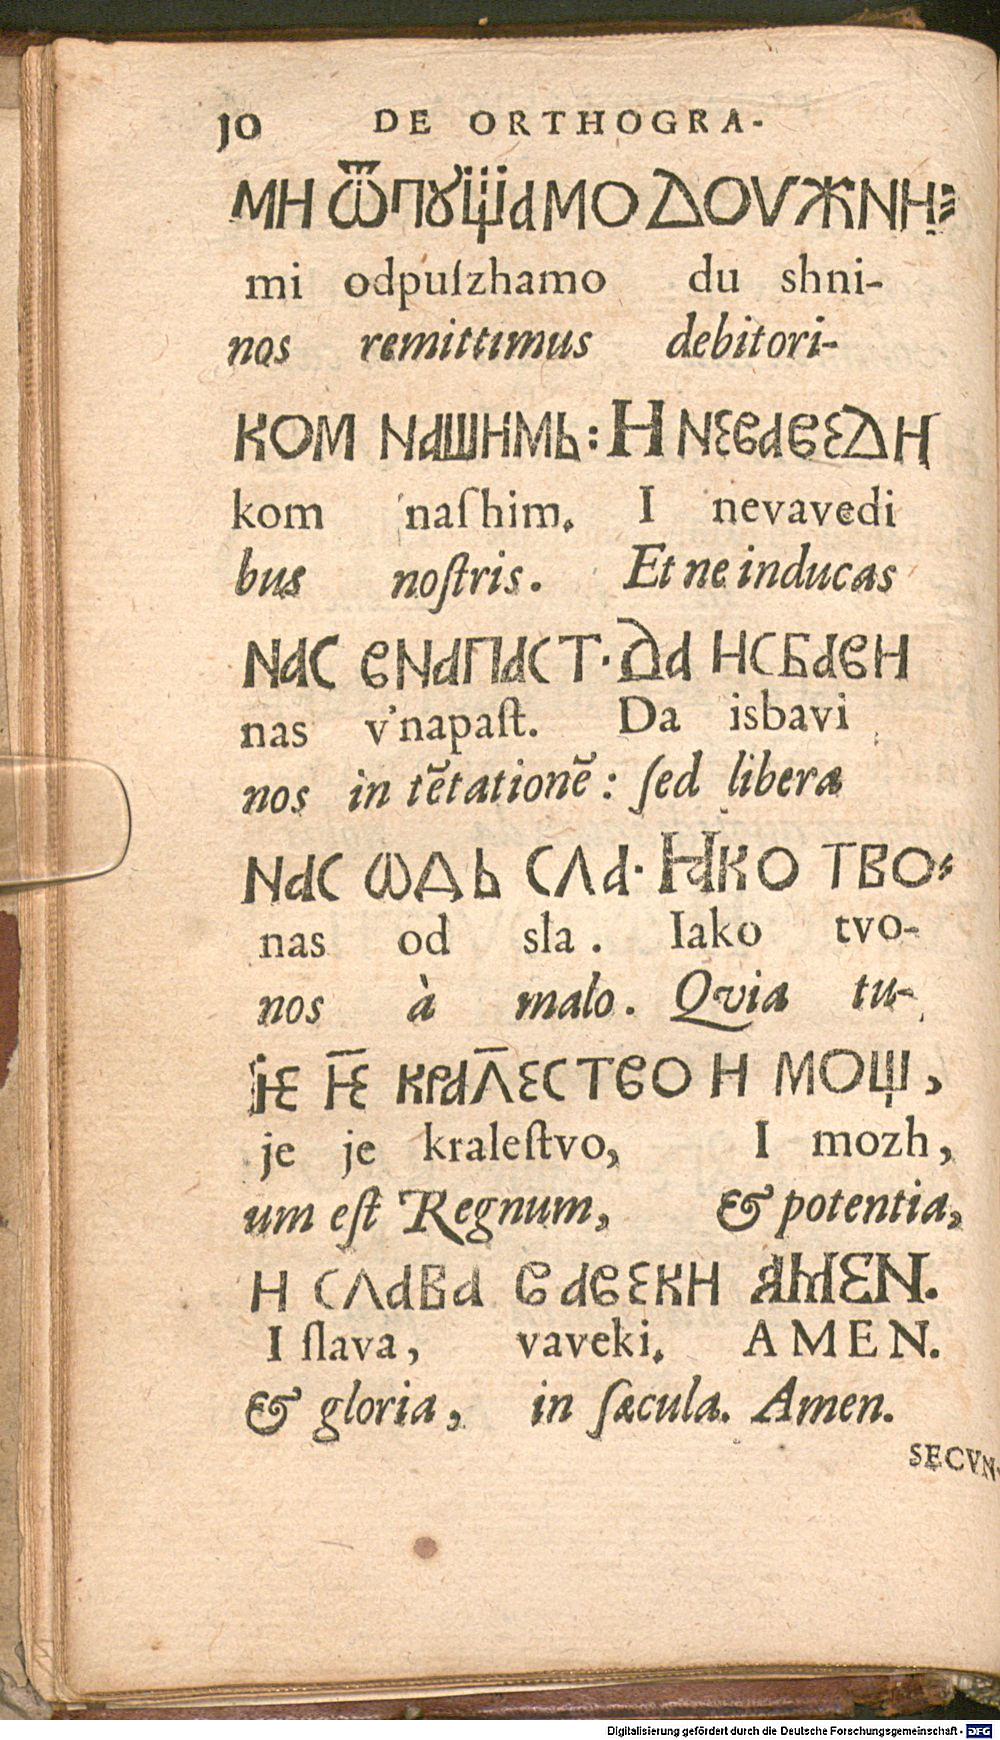 10 DE ORTHOGRA-
МН ѾПꙊЩАМО ДОѴЖNН⸗
mi odpuſzhamo du shni-
nos remittimus debitori-
КОМ NАШНМЬ: Н NЕВАВЕДН
kom naſhim. I nevavedi
bus noſtris. Et ne inducas
NАС ВNАПАСТ· ДА НСБАВН
nas v'napaſt. Da isbavi
nos in tẽtationẽ: ſed libera
NАС ѠДЬ СЛА· ꙖКО ТВО⸗
nas od sla. Iako tvo-
nos à malo. Qvia tu-
ѤЕ Ѥ КРАЛЕСТВО Н МОЩ,
je je kraleſtvo, I mozh,
um eſt Regnum, & potentia,
Н СЛАВА ВАВЕКН АМЕN.
I ſlava, vaveki. AMEN.
& gloria, in ſæcula. Amen.
SECVN-
Digitalisierung gefördert durch die Deutsche Forschungsgemeinschaft - DFG